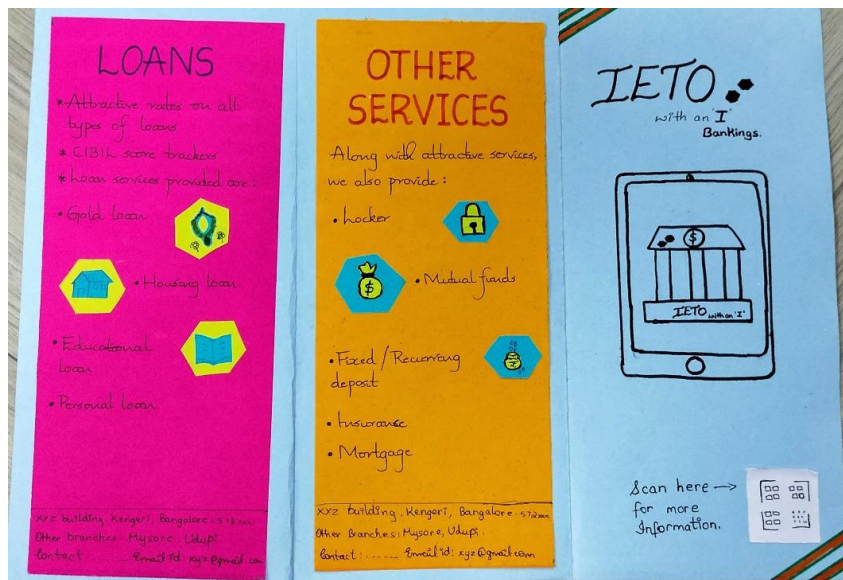 LOANS
* Attractive rates on all
types of loans
* CIBIL score trackers
* Loan services provided are :
• Gold loan
• Housing loan
• Educational
loan
• Personal loan
XYZ building, Kengeri, Bangalore - 572xxx
Other branches: Mysore, Udupi.
Contact : ....... Email id: xyz@gmail.com
OTHER
SERVICES
Along with attractive services,
we also provide :
• Locker
$
• Mutual funds
• Fixed / Recurring
deposit
• Insurance
• Mortgage
XYZ building, Kengeri, Bangalore - 572xxx
Other Branches: Mysore, Udupi.
Contact : ....... Email id: xyz@gmail.com
IETO
with an 'I'
Bankings.
$
IETO with an 'I'
Scan here →
for more
Information.